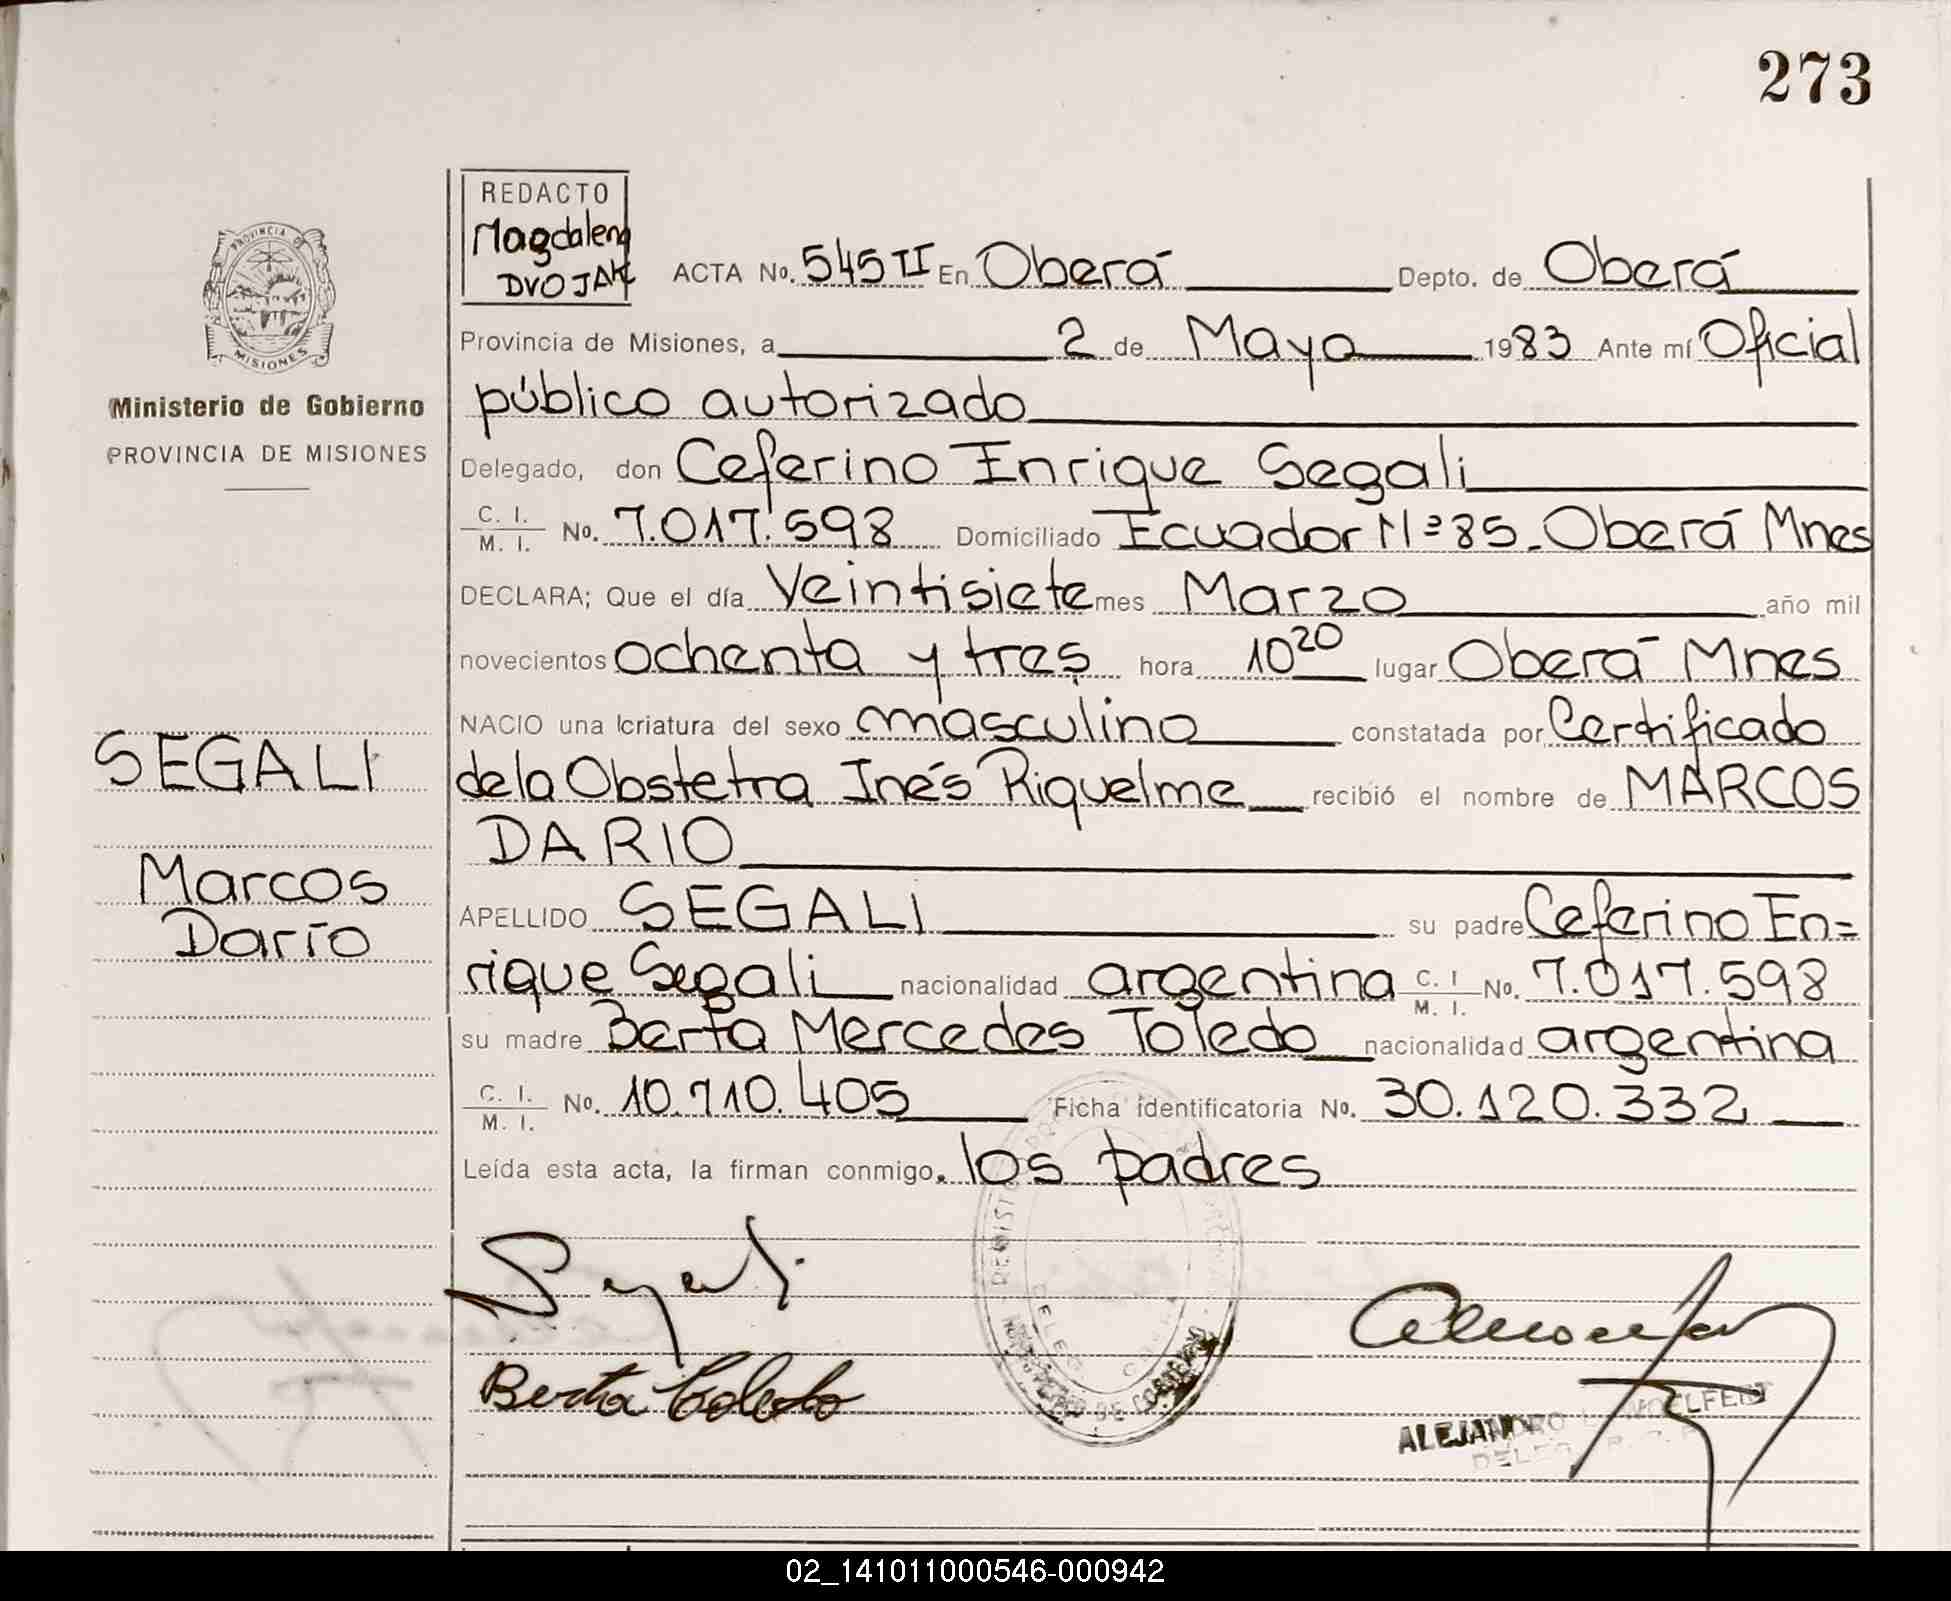 273
REDACTO
Magdalena
DVOJAK
ACTA No. 545 II En Oberá Depto. de Oberá
PROVINCIA DE
MISIONES
Provincia de Misiones, a 2 de Mayo 1983 Ante mí Oficial
público autorizado
Ministerio de Gobierno
PROVINCIA DE MISIONES
Delegado, don Ceferino Enrique Segali
C. I.
M. I. No. 7.017.598 Domiciliado Ecuador Nº 85 - Oberá Mnes
DECLARA; Que el día Veintisiete mes Marzo año mil
novecientos ochenta y tres hora 10 20 lugar Oberá Mnes
NACIO una criatura del sexo masculino constatada por Certificado
de la Obstetra Inés Riquelme recibió el nombre de MARCOS
DARIO
SEGALI
Marcos
Darío
APELLIDO SEGALI su padre Ceferino En=
rique Segali nacionalidad argentina C. I.
M. I. No. 7.017.598
su madre Berta Mercedes Toledo nacionalidad argentina
C. I.
M. I. No. 10.710.405 Ficha identificatoria No. 30.120.332
Leída esta acta, la firman conmigo, los padres
Segali
Berta Toledo
ALEJANDRO
02_141011000546-000942